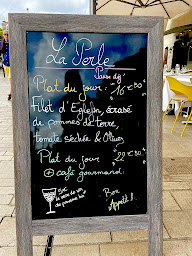 La Perle
Plat du jour : 16 €50
Filet d'Eglefin, écrasé
de pommes de terre,
tomate séchée & Olives
Plat du jour 22 €50
+ café gourmand:
5€
le verre de vin
du moment
Bon
Appétit!